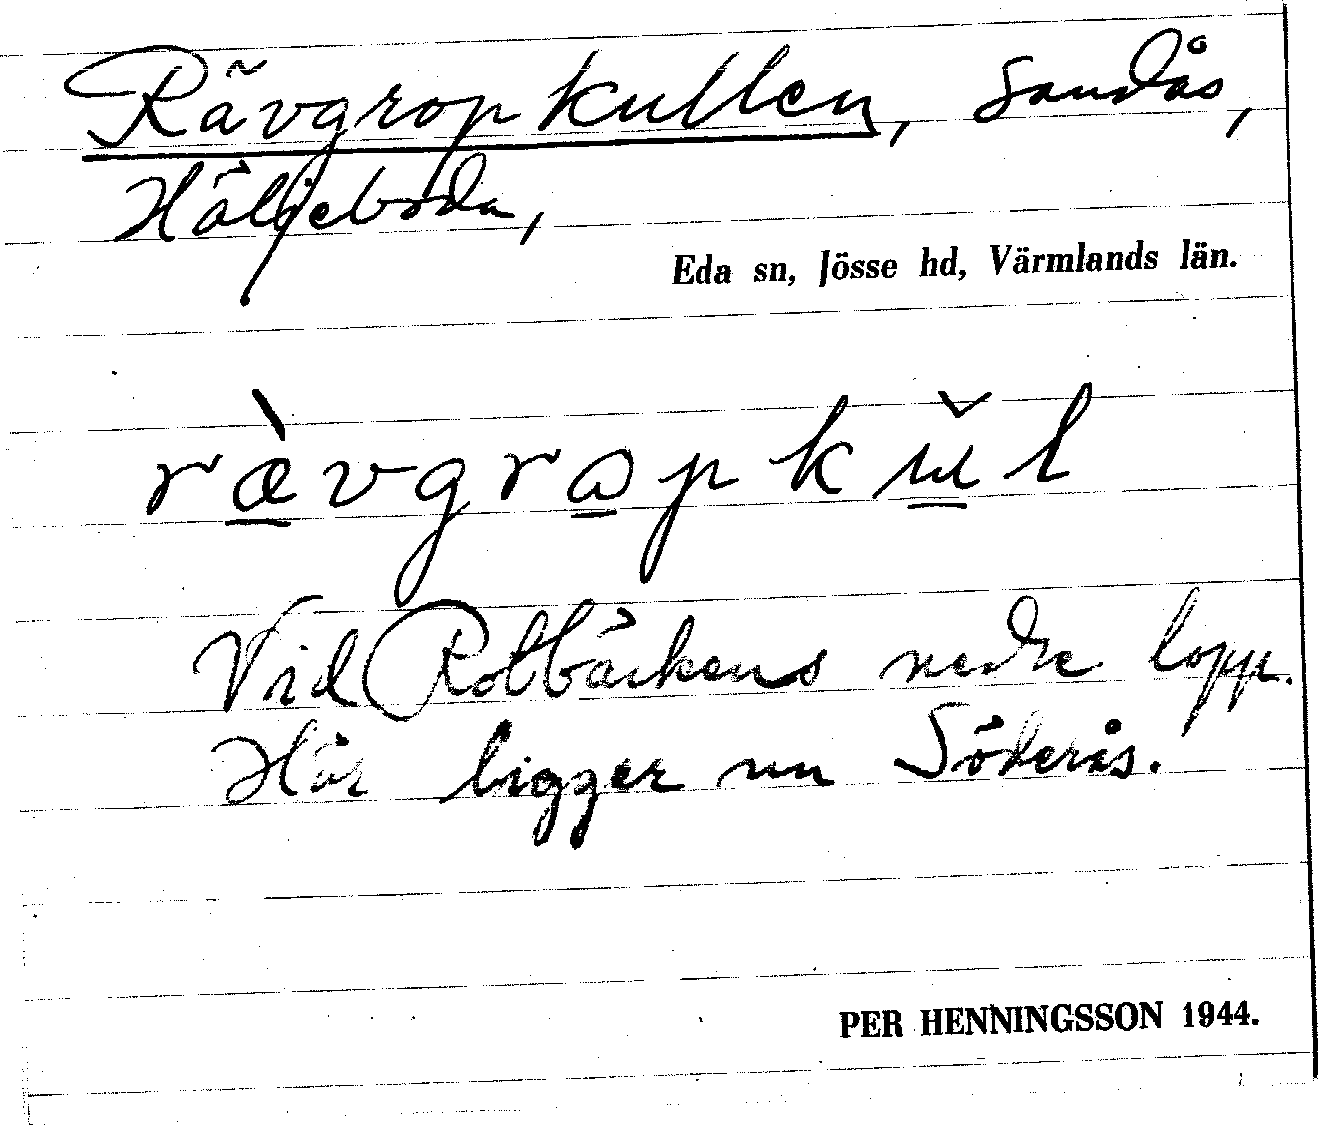 Rävgropkullen, Sandås,
Häljeboda,
Eda sn, Jösse hd, Värmlands län.
rævgrapkul
Vid Rotbäckens nedre lopp.
Här ligger nu Söderås.
PER HENNINGSSON 1944.